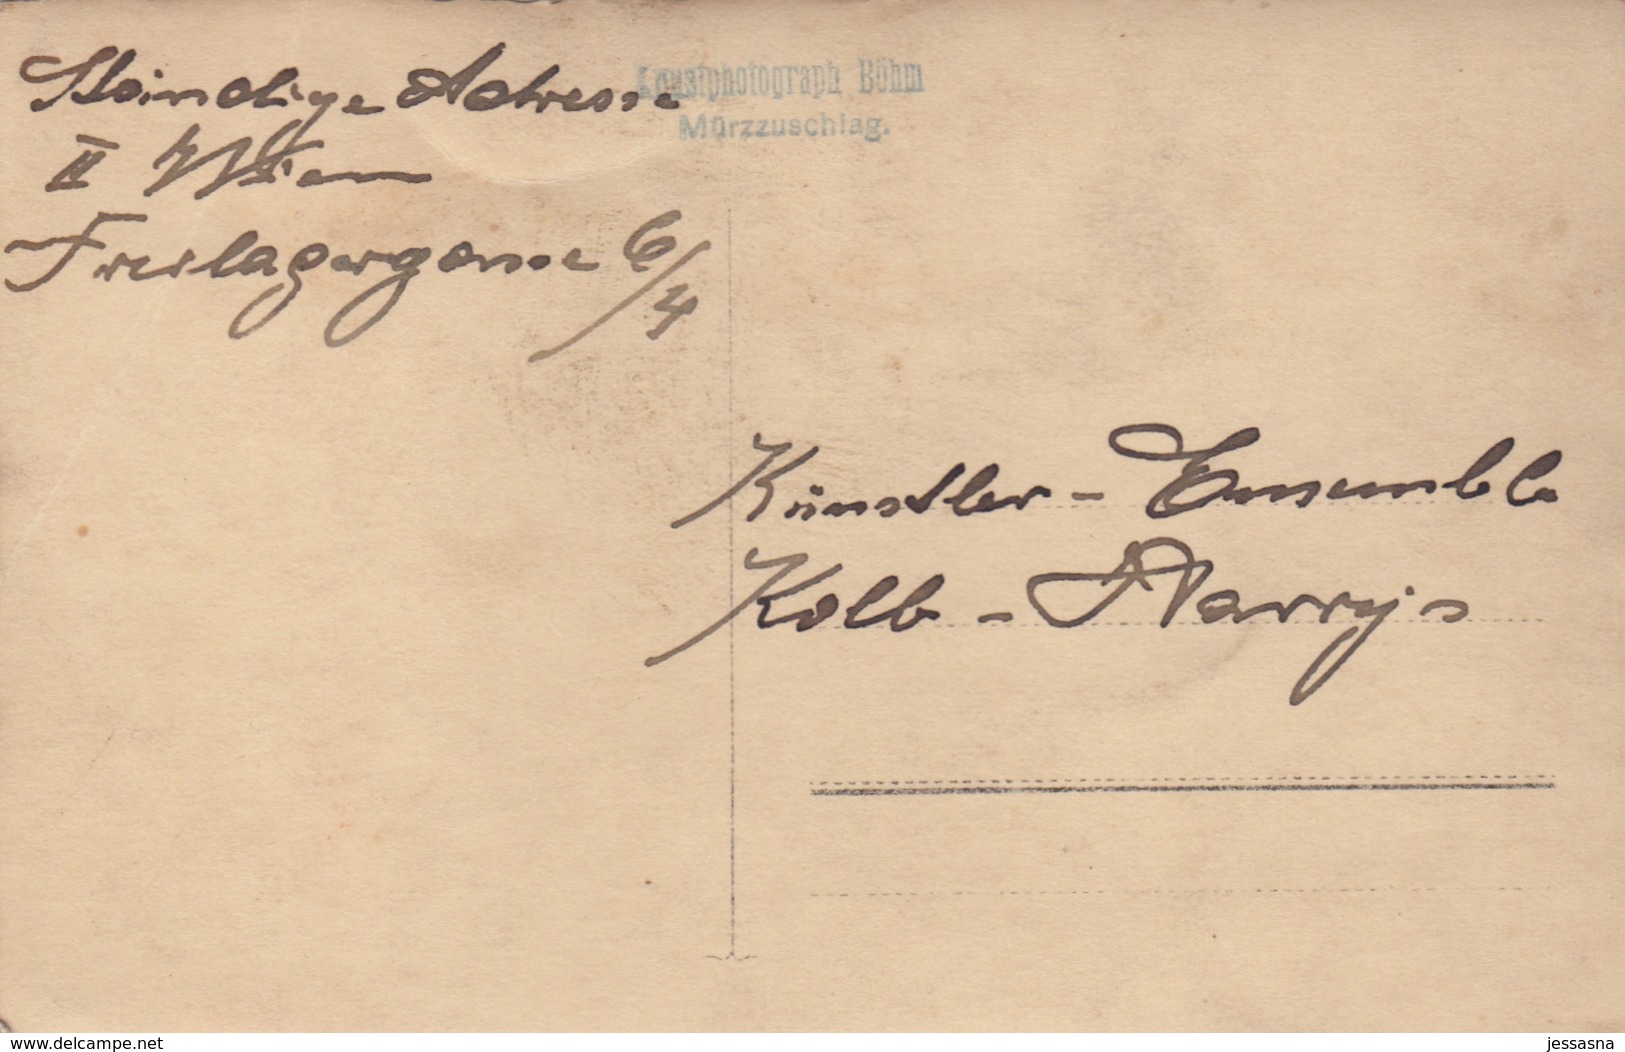 Ständige Adresse
II Wien
Freilagergasse 6/4
Kunstphotograph Böhm
Mürzzuschlag.
Künstler - Ensemble
Kolb - Harrys
www.delcampe.net
jessasna